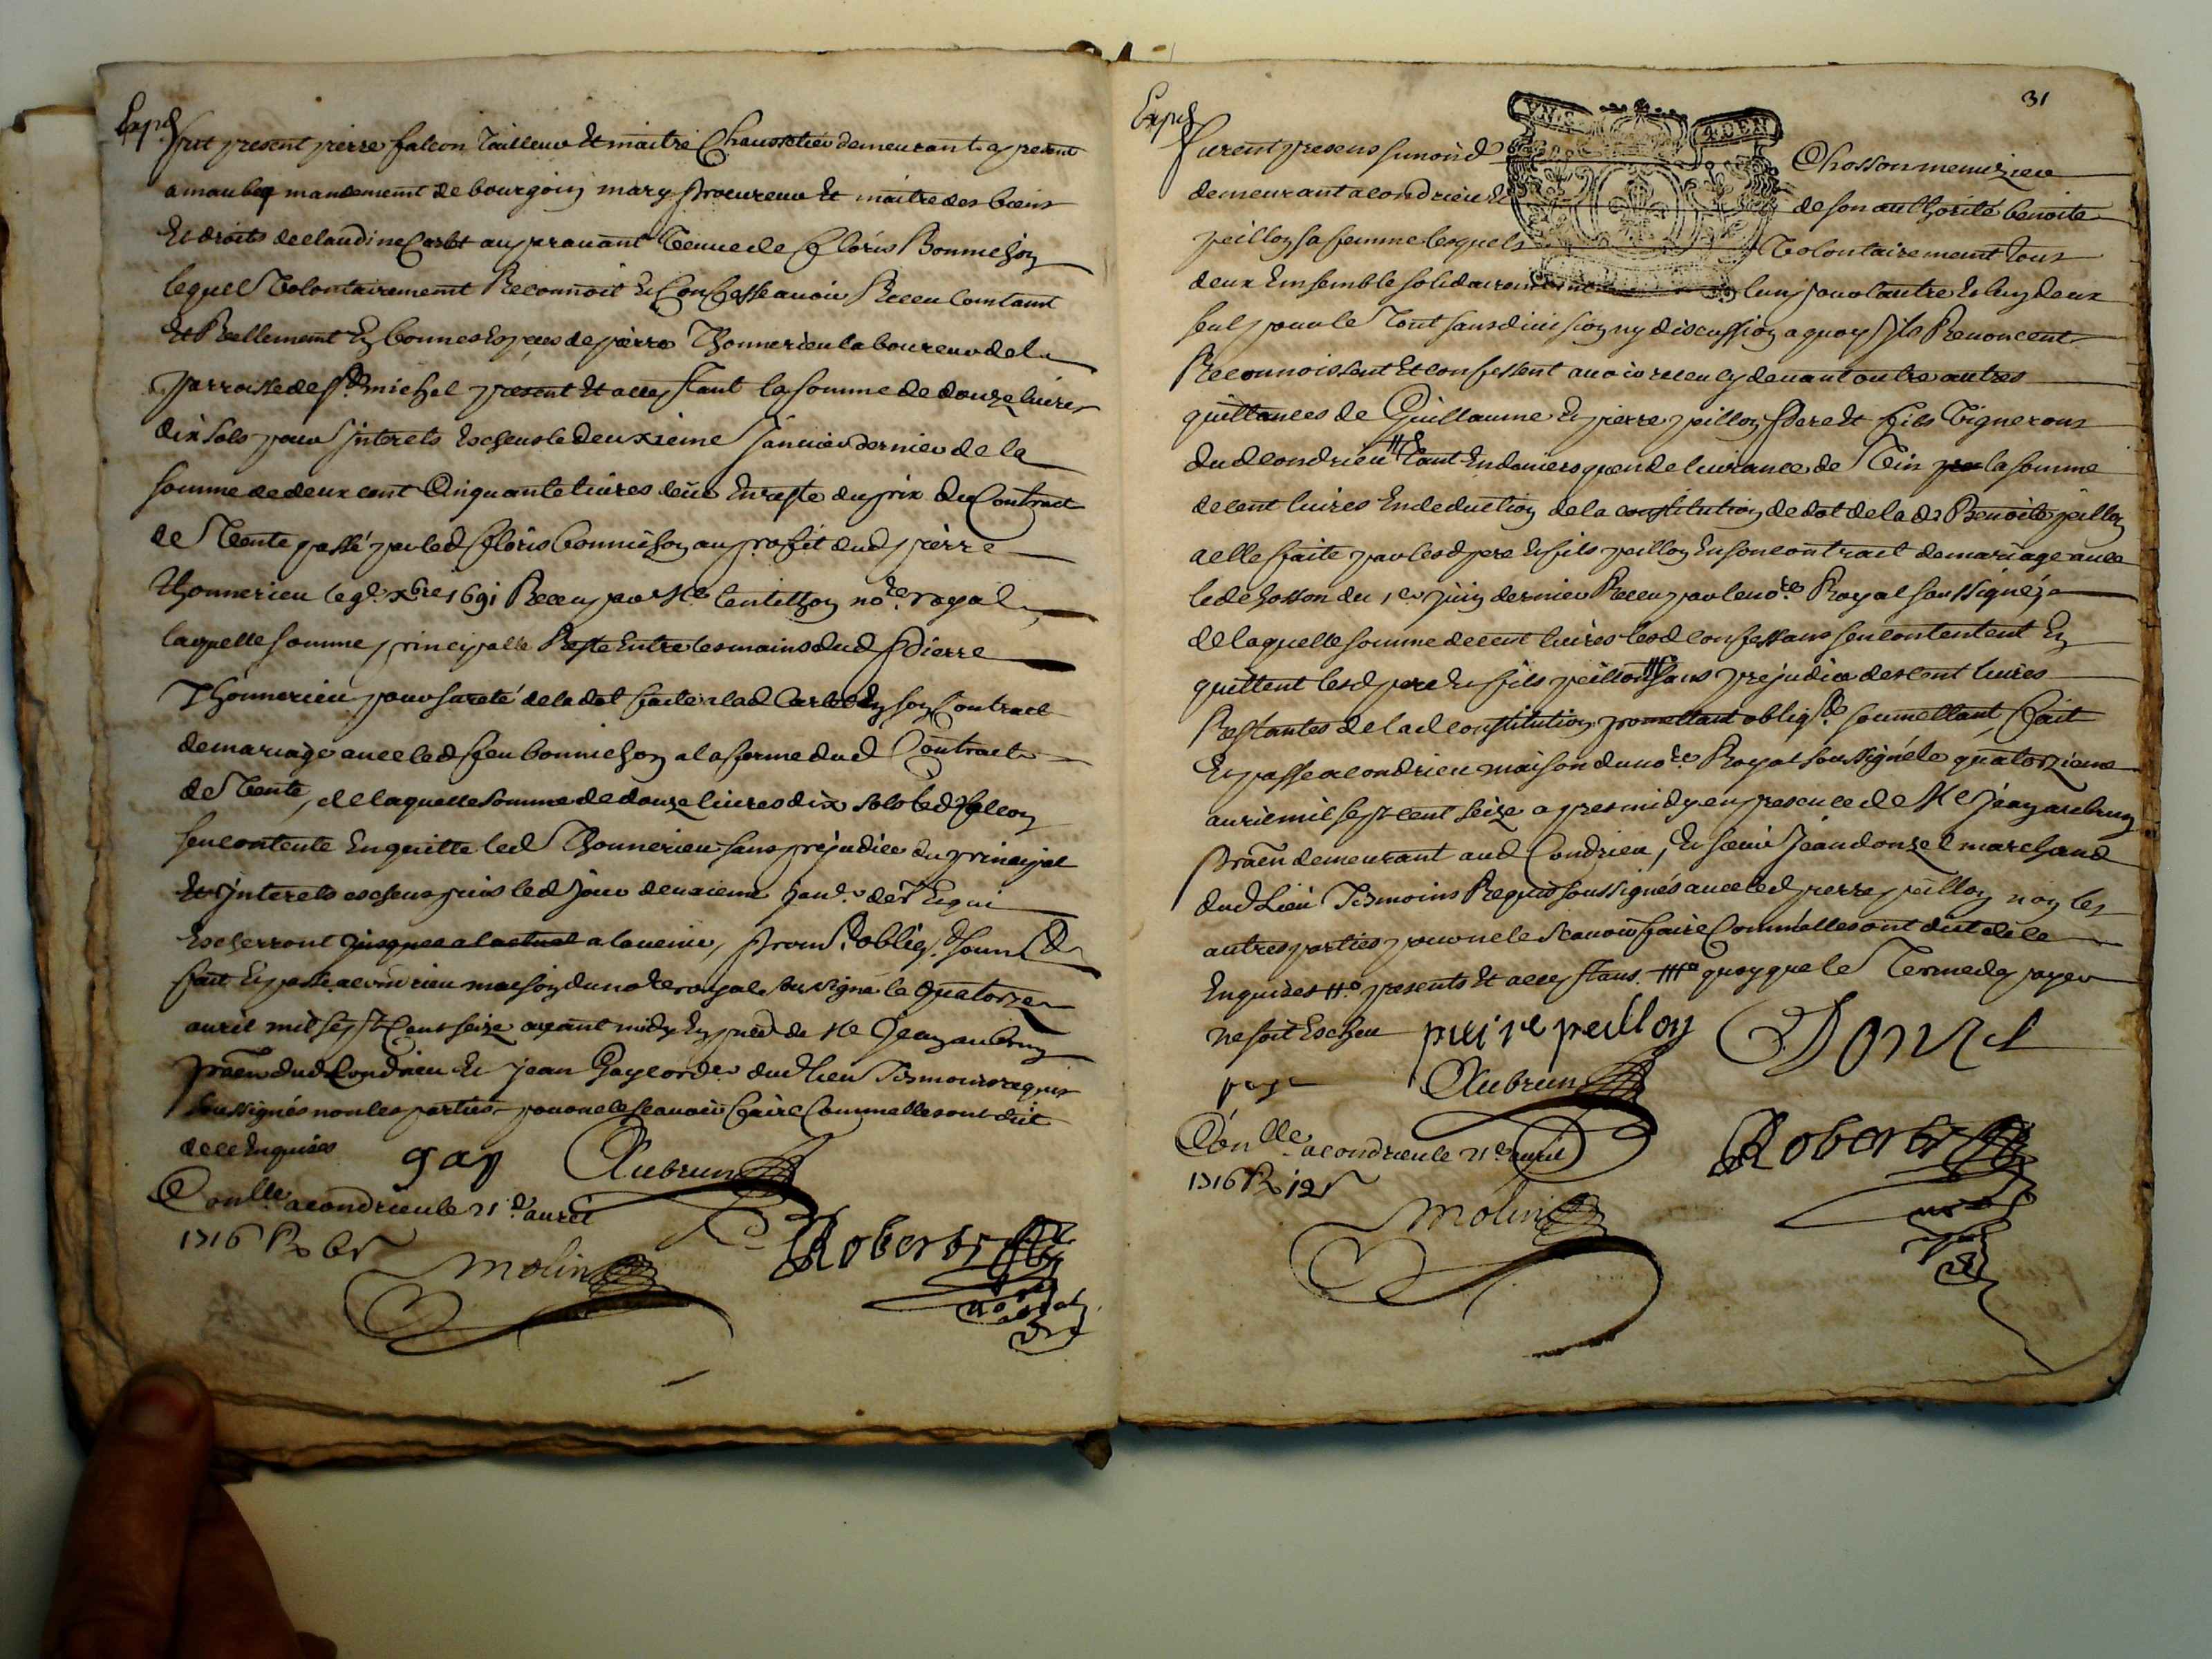 Exp.d
fut present pierre falcon Tailleur Et maitre Chaussetier demeurant a present
a maubeq mandement de bourgoin mary procureur Et maitre des biens
Et droits de claudine Carlet auparauant Veuue de floris Bonnichon
lequel Volontairement Reconnoit Et Confesse auoir Receu Contant
Et Reellement En bonnes Especes de pierre Thonnerieu laboureur de la
parroisse de St michel present Et acceptant la somme de douze liures
dix sols pour Interets Escheus le deuxieme Januier dernier de la
somme de deux cent Cinquante liures deüe En reste du prix du Contract
de Vente passé par led floris bonnichon au profit dud pierre
Thonnerieu le 9e xbre 1691 Receu par Me lentillon nore royal,
laquelle somme principalle Reste Entre les mains dud pierre
Thonnerieu pour sureté de la dot faite a lad Carlet En son Contract
de mariage auec led feu bonnichon a la forme dud Contract
de Vente, de laquelle somme de douze liures dix sols led falcon
sen contente En quitte led Thonnerieu sans prejudice du principal
Et Interets escheus puis led jour deuxieme janr der Et qui
Escherront jusques a lactuel a lauenir, prom. oblig. soum.
fait Et passé a condrieu maison du nore royal sousigné le quatorze
auril mil sept Cent seize auant midy En pnce de Me Jean aubrun
praen dud Condrieu Et jean Gay cordr dud lieu Tesmoins requis
soussignés non les parties pour ne le scauoir faire Comme elles ont dit
de ce Enquises
gay
Aubrun
Conlle a condrieu le 21e auril
1716 R 6 s
Molin
Robert
nore royal
31
Exp.d
furent presens simond Chosson menuzier
demeurant a condrieu Et de son authorité benoite
peillon sa femme lesquels Volontairement tous
deux Ensemble solidairement lun pour lautre Et lun deux
seul pour le Tout sans diuision ny discussion a quoy Ils Renoncent
Reconnoissent Et confessent auoir receu cy deuant outre autres
quittances de Guillaume Et pierre peillon pere Et fils Vignerons
dud condrieu tant En deniers quen deliurance de Vin la somme
de cent liures En deduction de la constitution de dot de lad Benoite peillon
a elle faite par lesd pere Et fils peillon En son contract de mariage auec
led chosson du 1er juin dernier Receu par le nore Royal soussigné
de laquelle somme de cent liures lesd confessans sen contentent En
quittent lesd pere Et fils peillon sans prejudice des cent liures
Restantes de lad constitution promettant oblig. soumettant, fait
Et passé a condrieu maison du nore Royal soussigné le quatorzieme
auril mil sept cent seize apres midy en presence de Me jean aubrun
praen demeurant aud Condrieu, Et sieur Jean donzel marchand
dud Lieu Tesmoins Requis soussignés auec led pierre peillon non les
autres parties pour ne le scauoir faire Comme elles ont dit de ce
Enquises presents Et acceptans. quoyque le Terme de payer
ne soit Escheu
peire peilloy
Donzel
Aubrun
Conlle a condrieu le 21e auril
1716 R 12 s
Molin
Robert
nore royal